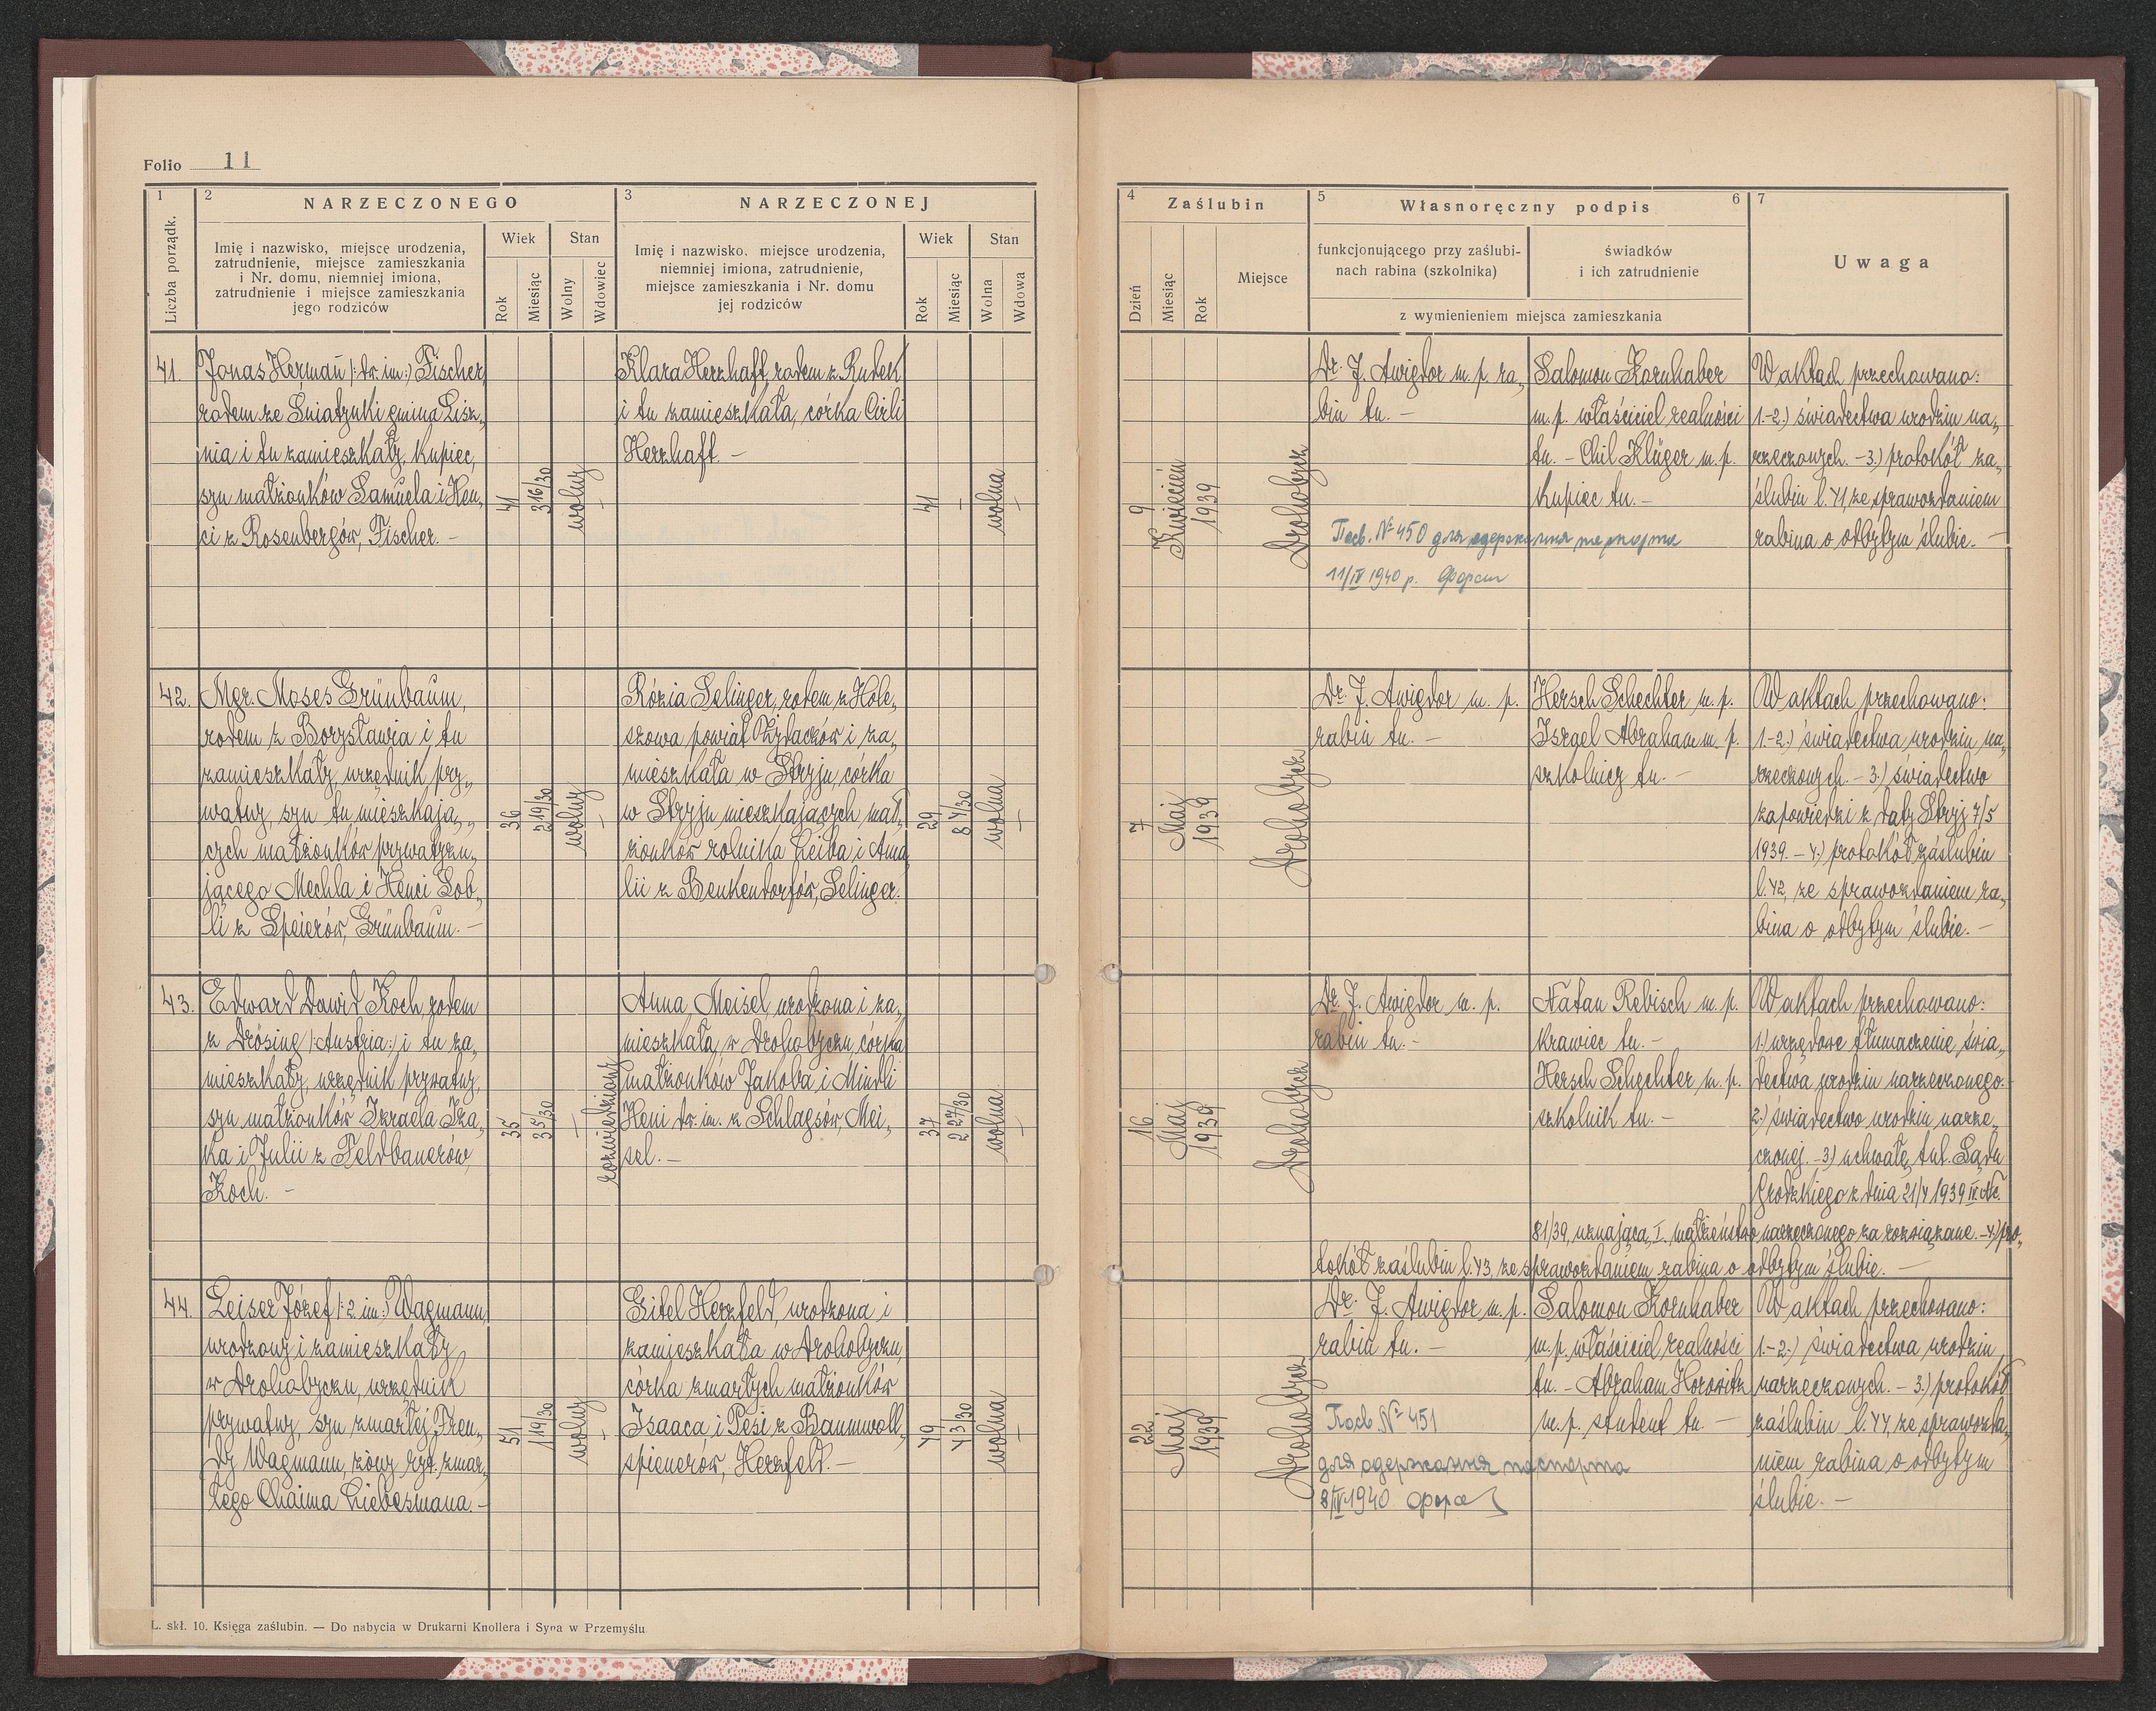 Folio 11
1
2 NARZECZONEGO
3 NARZECZONEJ
Liczba porządk.
Imię i nazwisko, miejsce urodzenia,
zatrudnienie, miejsce zamieszkania
i Nr. domu, niemniej imiona,
zatrudnienie i miejsce zamieszkania
jego rodziców
Wiek
Stan
Rok
Miesiąc
Wolny
Wdowiec
Imię i nazwisko, miejsce urodzenia,
niemniej imiona, zatrudnienie,
miejsce zamieszkania i Nr. domu
jej rodziców
Wiek
Stan
Rok
Miesiąc
Wolna
Wdowa
4 Zaślubin
Dzień
Miesiąc
Rok
Miejsce
5 Własnoręczny podpis 6
funkcjonującego przy zaślubi-
nach rabina (szkolnika)
świadków
i ich zatrudnienie
z wymienieniem miejsca zamieszkania
7
Uwaga
41.
Jonas Herman /: dw. im:/ Fischer,
rodem ze Śniatynki gmina Lisz„
nia i tu zamieszkały, kupiec,
syn małżonków Samuela i Hen„
ci z Rosenbergów, Fischer. –
41
3 16/30
wolny
–
Klara Herzhaft, rodem z Rudek
i tu zamieszkała, córka Cirli
Herzhaft. –
41
–
wolna
–
9
Kwiecień
1939
Drohobycz
Dr. J. Awigdor m. p. ra„
bin tu. –
Salomon Kornhaber
m. p. właściciel realności
tu. – Chil Klüger m. p.
kupiec tu. –
Посв. № 450 для одержання паспорта
11/IV 1940 р.
W aktach przechowano:
1.-2.) świadectwa urodzin na„
rzeczonych. – 3.) protokół za„
ślubin l. 41, ze sprawozdaniem
rabina o odbytym ślubie. –
42.
Mgr. Moses Grünbaum,
rodem z Borysławia i tu
zamieszkały, urzędnik pry„
watny, syn tu mieszkają„
cych małżonków prywatyzu„
jącego Mechla i Henci Lob„
li z Speierów, Grünbaum. –
36
2 19/30
wolny
–
Rózia Selinger, rodem z Hole„
szowa powiat Żydaczów i za„
mieszkała w Stryju, córka
w Stryju mieszkających mał„
żonków rolnika Leiba i Ama„
lii z Benkendorfów, Selinger.
29
8 4/30
wolna
–
7
Maj
1939
Drohobycz
Dr. J. Awigdor m. p.
rabin tu. –
Hersch Schechter m. p.
Israel Abraham m. p.
szkolnicy tu. –
W aktach przechowano:
1.-2.) świadectwa urodzin na„
rzeczonych. – 3.) świadectwo
zapowiedzi z daty Stryj 7/5
1939. – 4.) protokół zaślubin
l. 42, ze sprawozdaniem ra„
bina o odbytym ślubie. –
43.
Edward Dawid Koch, rodem
z Drösing /:Austria:/ i tu za„
mieszkały, urzędnik prywatny,
syn małżonków Izraela Iza„
ka i Julii z Feldbauerów
Koch. –
35
3 5/30
–
rozwiedziony
Anna Meisel, urodzona i za„
mieszkała w Drohobyczu, córka
małżonków Jakoba i Mindli
Heni dw. im. z Schlagsów, Mei„
sel. –
37
2 27/30
wolna
–
16
Maj
1939
Drohobycz
Dr. J. Awigdor m. p.
rabin tu. –
Natan Rebisch m. p.
krawiec tu. –
Hersch Schechter m. p.
szkolnik tu. –
W aktach przechowano:
1.) urzędowe tłumaczenie świa„
dectwa urodzin narzeczonego.
2.) świadectwo urodzin narze„
czonej. – 3.) uchwałę tut. Sądu
Grodzkiego z dnia 21/4 1939 IV. Nc.
81/39, uznającą I. małżeństwo narzeczonego za rozwiązane. – 4.) pro„
tokół zaślubin l. 43, ze sprawozdaniem rabina o odbytym ślubie. –
44.
Leiser Józef /: 2 im:/ Wagmann,
urodzony i zamieszkały
w Drohobyczu, urzędnik
prywatny, syn zmarłej Fren„
dy Wagmann, żony ryt. zmar„
łego Chaima Liebesmana. –
51
1 19/30
wolny
–
Gitel Herzfeld, urodzona i
zamieszkała w Drohobyczu,
córka zmarłych małżonków
Isaaca i Pesi z Baumwoll„
spienerów, Herzfeld. –
49
4 3/30
wolna
–
22
Maj
1939
Drohobycz
Dr. J. Awigdor m. p.
rabin tu. –
Salomon Kornhaber
m. p. właściciel realności
tu. – Abraham Horowitz
m. p. student tu. –
Посв. № 451
для одержання паспорта
8/IV 1940
W aktach przechowano:
1.-2.) świadectwa urodzin
narzeczonych. – 3.) protokół
zaślubin l. 44, ze sprawozda„
niem rabina o odbytym
ślubie. –
L. skł. 10. Księga zaślubin. — Do nabycia w Drukarni Knollera i Syna w Przemyślu